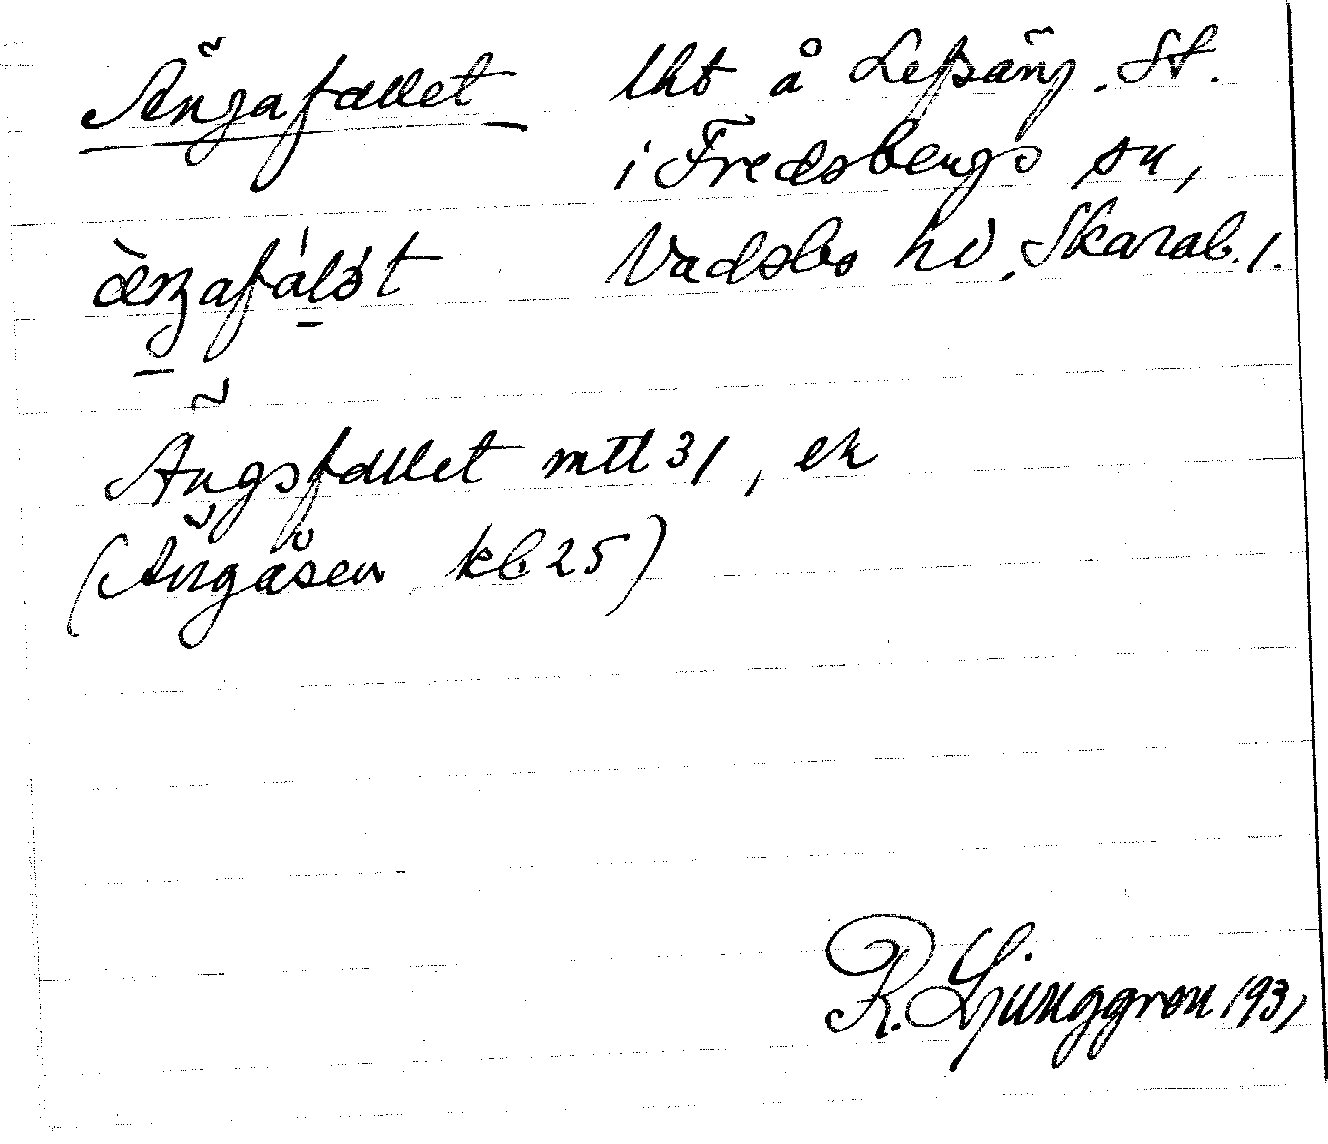 Ängafallet lht å Lefsäng. St.
i Fredsbergs sn,
Vadsbo hd, Skarab. l.
Ängsfallet mtl 31, ek
(Ängåsen kb 25)
R. Ljunggren 1931